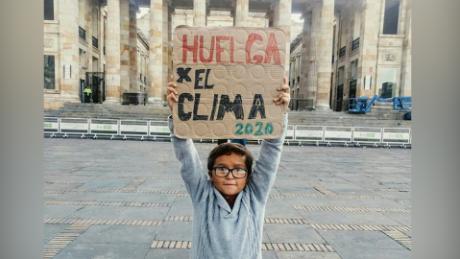 HUELGA
x EL
CLIMA
2020